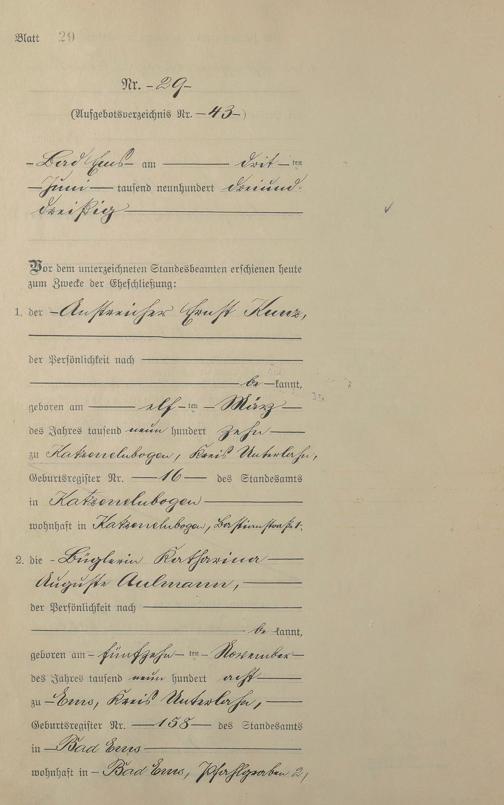 Blatt 29
Nr. -29-
(Aufgebotsverzeichnis Nr. -43-)
-Bad Ems- am drit-ten
-Juni- tausend neunhundert dreiund-
dreißig
Vor dem unterzeichneten Standesbeamten erschienen heute
zum Zwecke der Eheschließung:
1. der -Anstreicher Ernst Kunz,
der Persönlichkeit nach
be-kannt,
geboren am elf-ten- März
des Jahres tausend neun hundert zehn
zu Katzenelnbogen, Kreis Unterlahn,
Geburtsregister Nr. -16- des Standesamts
in Katzenelnbogen
wohnhaft in Katzenelnbogen,
2. die -Büglerin Katharina
Auguste Aulmann,
der Persönlichkeit nach
be-kannt,
geboren am -fünfzehn-ten- November
des Jahres tausend neun hundert acht
zu -Ems, Kreis Unterlahn,
Geburtsregister Nr. -155- des Standesamts
in -Bad Ems
wohnhaft in -Bad Ems, Pfahlgraben 2,